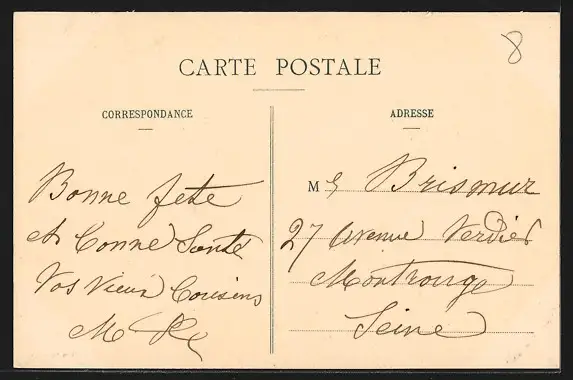 8
CARTE POSTALE
CORRESPONDANCE
Bonne fete
et Bonne Santé
Vos Vieux Cousins
ADRESSE
M Brismur
27 Avenue Verdier
Montrouge
Seine